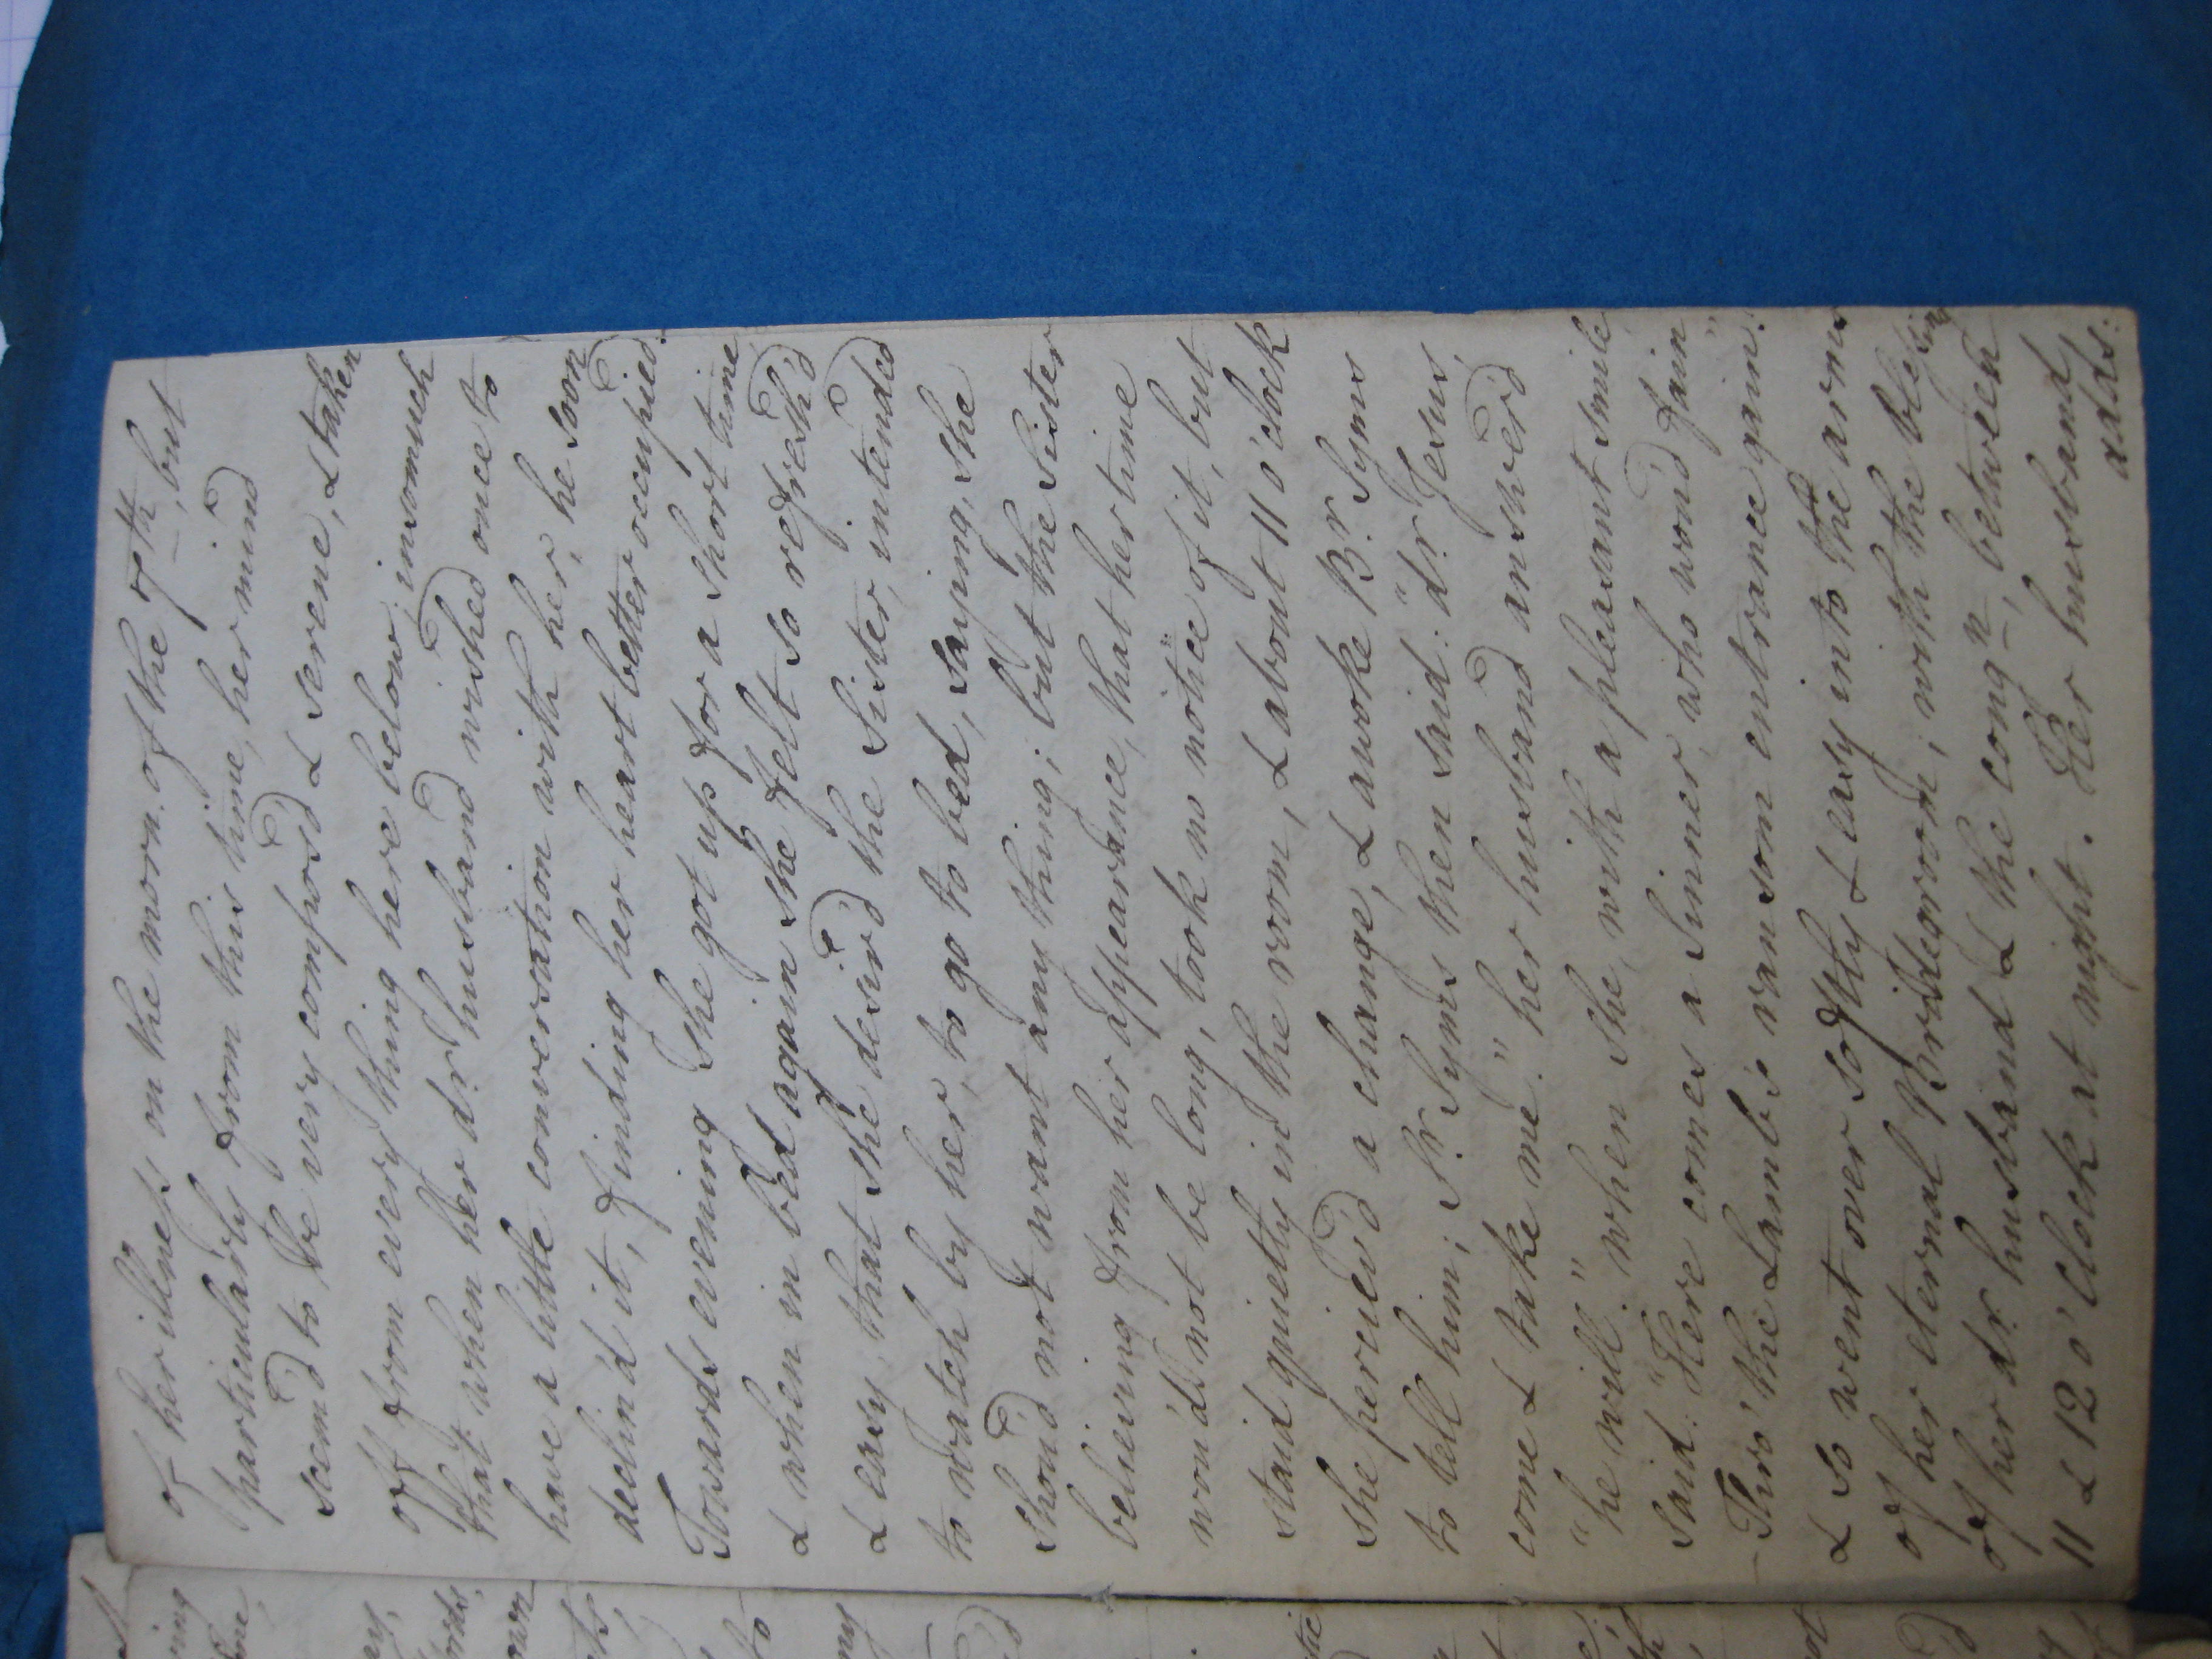 of her illness on the morn. of the 7th, but
particularly from this time, her mind
seem'd to be very compos'd & serene, & taken
off from every thing here below; insomuch
that when her dr. husband wished once to
have a little conversation with her, he soon
declin'd it, finding her heart better occupied.
Towards evening she got up for a short time
& when in bed again she felt so refresh'd
& easy, that she desir'd the Sister, intended
to watch by her, to go to bed, saying, she
shou'd not want any thing; but the Sister
believing from her appearance, that her time
wou'd not be long, took no notice of it, but
staid quietly in the room, & about 11 o'clock
she perciev'd a change, & awoke Br. Syms
to tell him; Sr. Syms then said: "dr. Jesus,
come & take me." her husband answer'd
"he will." when she, with a pleasant smile
said: "Here comes a Sinner, who wou'd fain
- Thro' the Lamb's ransom entrance gain".
& so went over softly & easy into the arms
of her eternal Bridegroom; with the blessing
of her dr. husband & the congn, between
11 & 12 o'clock at night. Her husband
adds:
ving
ords,
own
to
ny
tic
ot